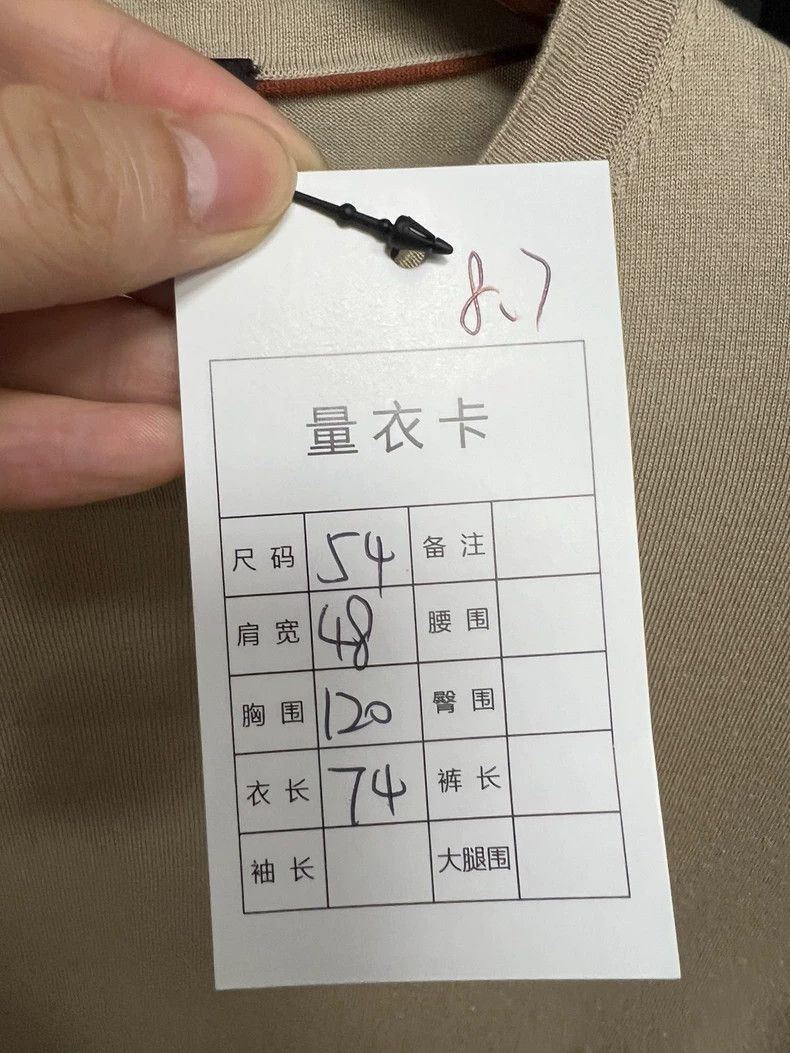 8、7
量衣卡
尺码 54 备注
肩宽 48 腰围
胸围 120 臀围
衣长 74 裤长
袖长 大腿围